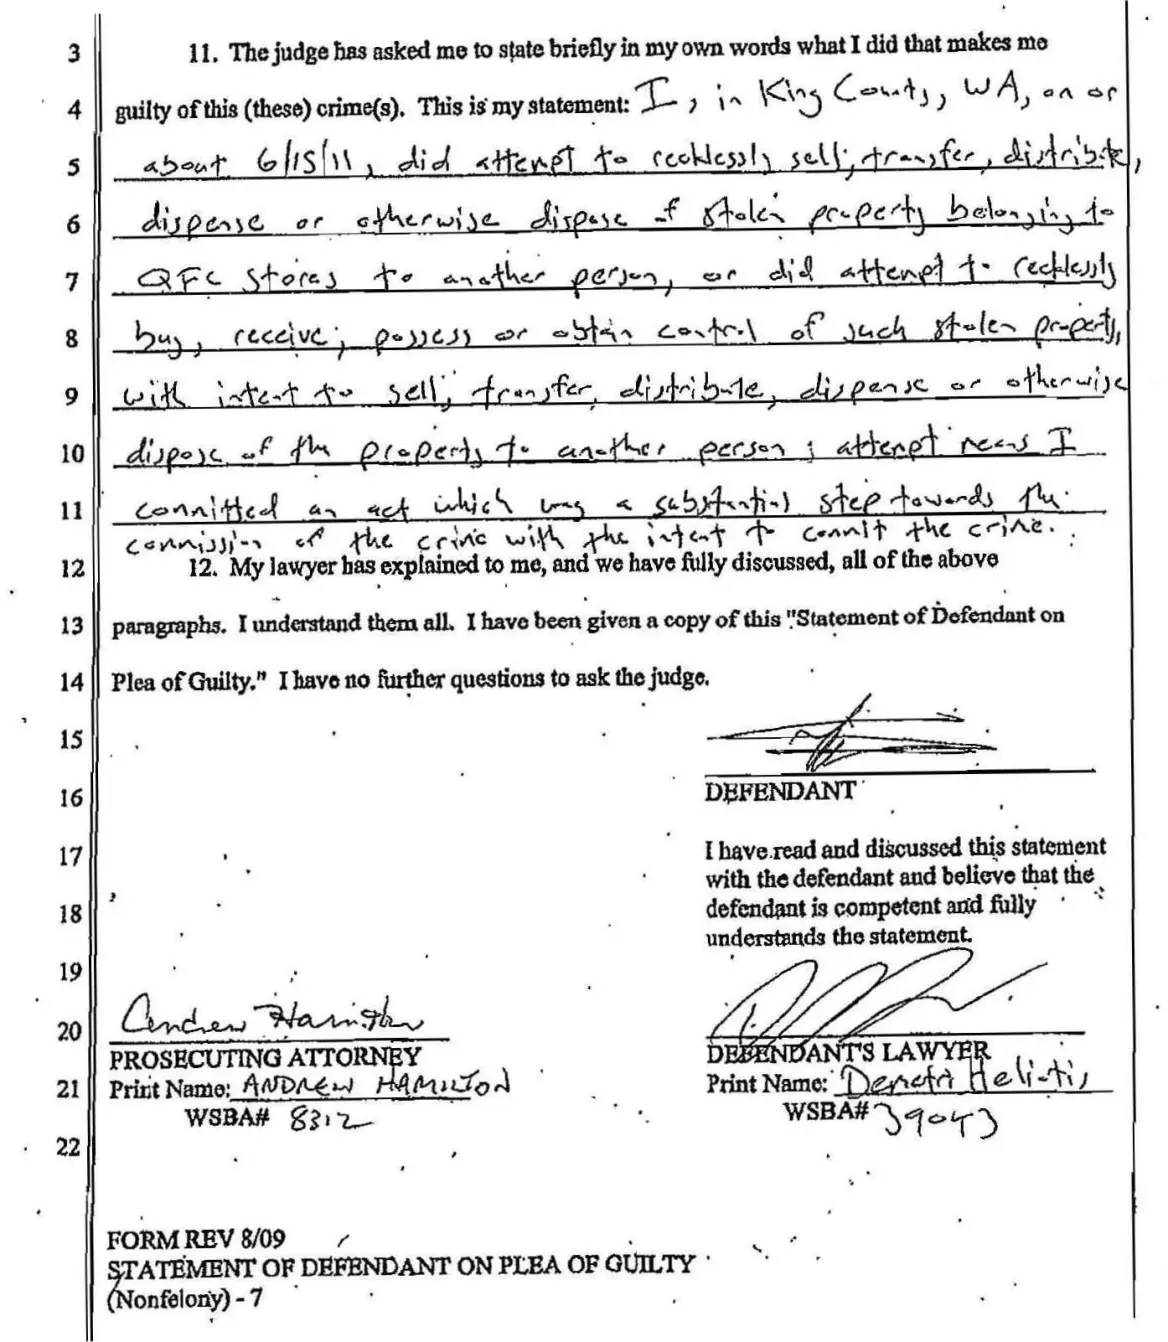 3 11. The judge has asked me to state briefly in my own words what I did that makes me
4 guilty of this (these) crime(s). This is my statement: I, in King County, WA, on or
5 about 6/15/11, did attempt to recklessly sell, transfer, distribute,
6 dispense or otherwise dispose of stolen property belonging to
7 QFC stores to another person, or did attempt to recklessly
8 buy, receive, possess or obtain control of such stolen property,
9 with intent to sell, transfer, distribute, dispense or otherwise
10 dispose of the property to another person; attempt means I
11 committed an act which was a substantial step towards the
commission of the crime with the intent to commit the crime.
12 12. My lawyer has explained to me, and we have fully discussed, all of the above
13 paragraphs. I understand them all. I have been given a copy of this "Statement of Defendant on
14 Plea of Guilty." I have no further questions to ask the judge.
15
16 DEFENDANT
17 I have read and discussed this statement
with the defendant and believe that the
18 defendant is competent and fully
understands the statement.
19
20 Andrew Hamilton
PROSECUTING ATTORNEY DEFENDANT'S LAWYER
21 Print Name: ANDREW HAMILTON Print Name: Demetri Heliotis
WSBA# 8312 WSBA# 39043
22
FORM REV 8/09
STATEMENT OF DEFENDANT ON PLEA OF GUILTY
(Nonfelony) - 7